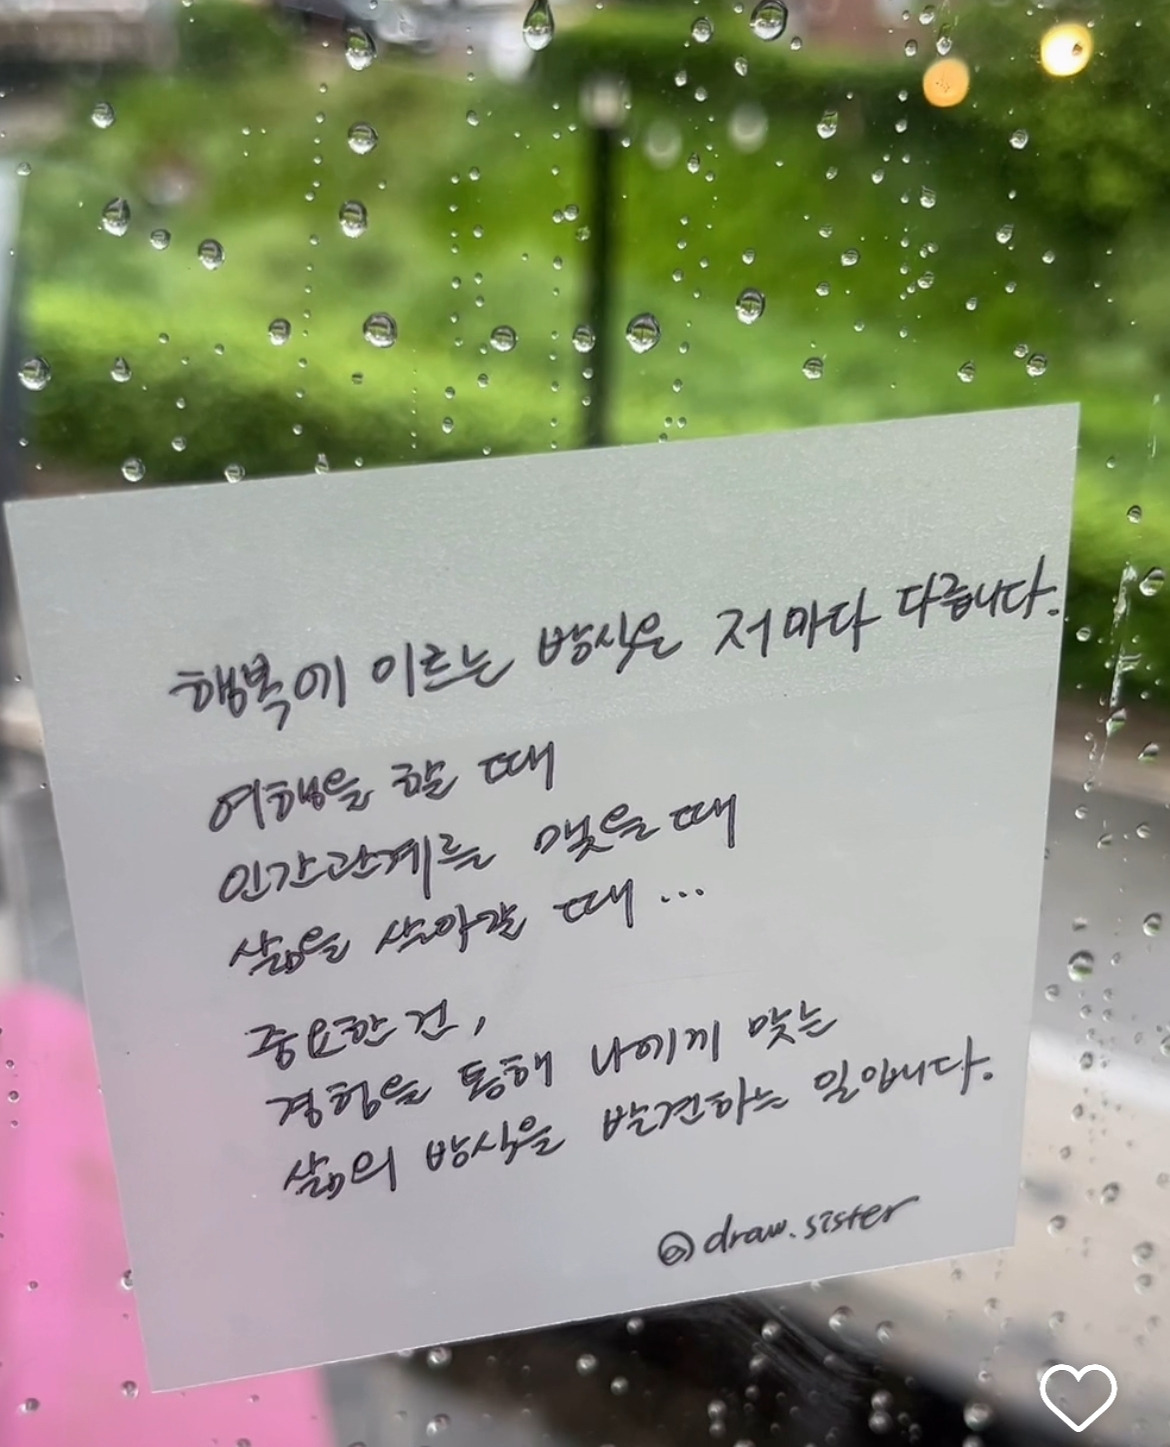 행복에 이르는 방식은 저마다 다릅니다.
여행을 할 때
인간관계를 맺을 때
삶을 살아갈 때...
중요한 건,
경험을 통해 나에게 맞는
삶의 방식을 발견하는 일입니다.
@draw.sister